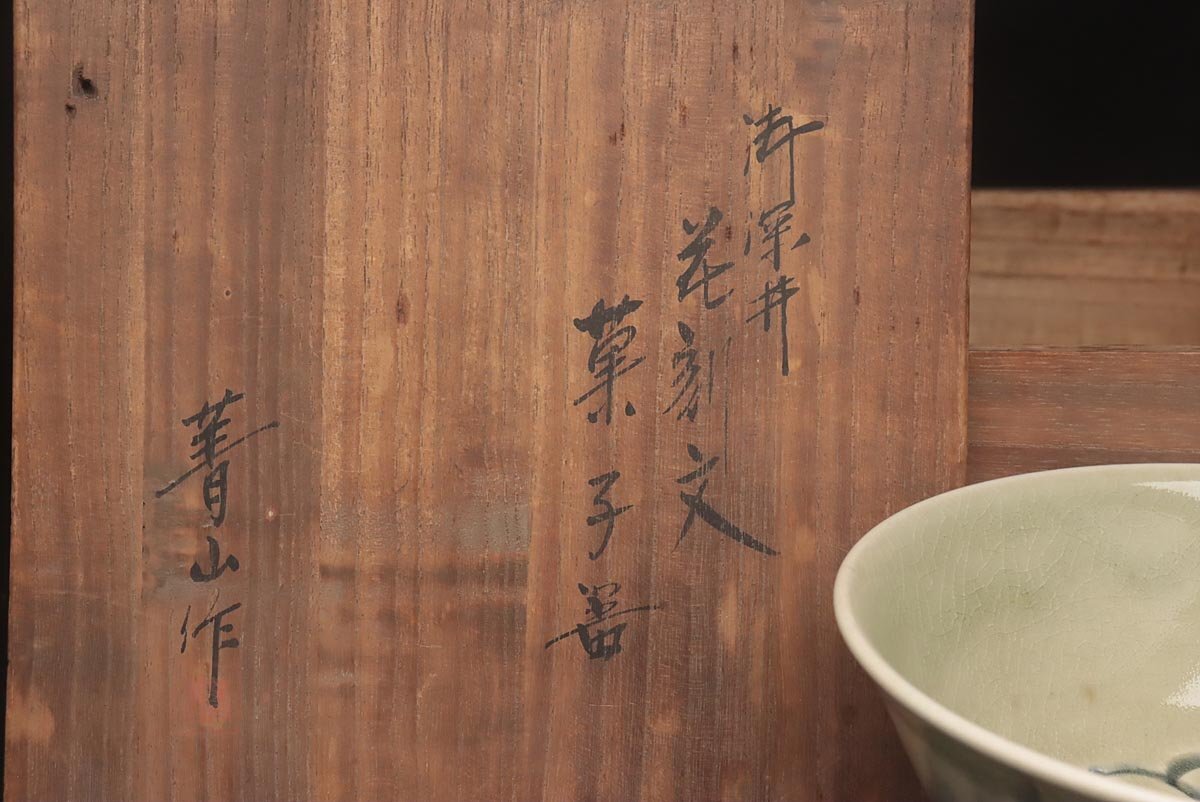 御深井
花刻文
菓子器
菁山作